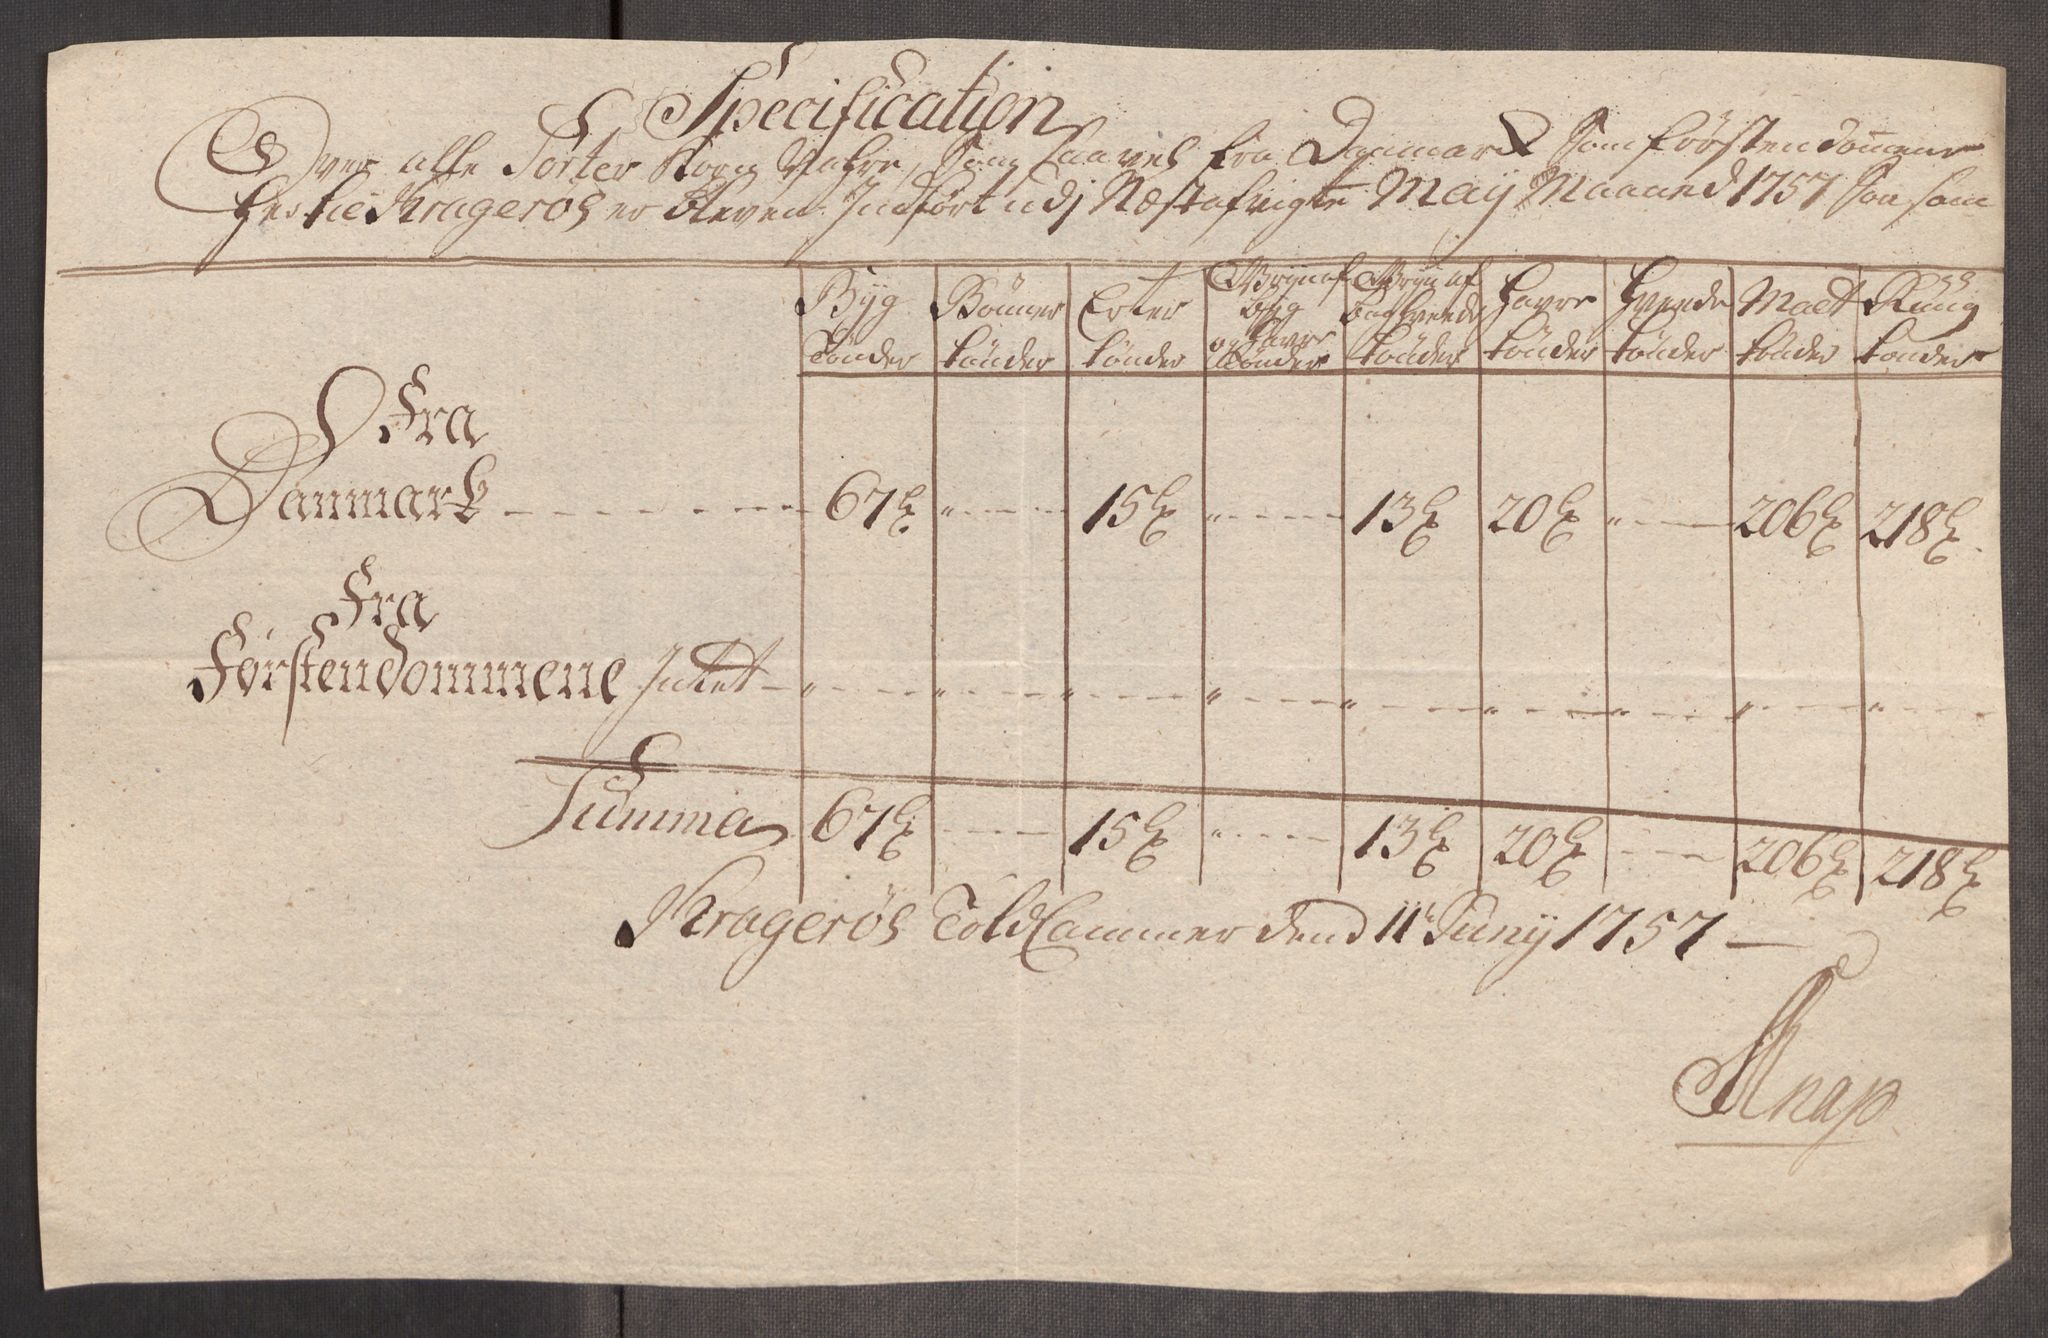 Specification
Over alle Sorter Korn Vahre, Som saavel fra Danmark Som Förstendommene
her til Kragerös er bleven Indfört udj Næstafvigte Maÿ Maaned 1757 Saa som
Bÿg Tönder | Bönner tönder | Erter tönder | Grÿn af bÿg og Havre tönder | Grÿn af boghvede tönder | Havre tönder | Hvede tönder | Malt tönder | Rúug tönder
Fra
Danmark - - - 67 | " - - - | 15 | " - - - | 13 | 20 | " - - - | 206 | 218
Fra
Førstendommene Intet - " - - - | " - - - | " - - - | " - - - | " - - - | " - - - | " - - - | " - - - | " - - -
Summa 67 | - - - | 15 | " - - - | 13 | 20 | - - - | 206 | 218
Kragerös Told Cammer dend 11te Junÿ 1757 —
Knap